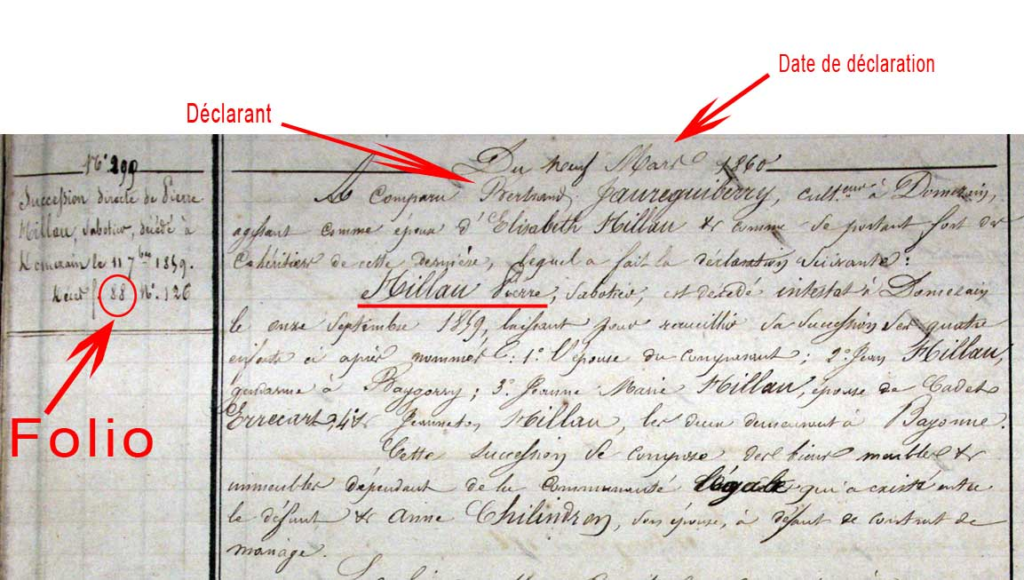 Date de déclaration
Déclarant
N° 290
Succession directe de Pierre
Hillau, sabotier, décédé à
Domezain le 11 7bre 1859.
f° 88 N°. 126
Folio
Du neuf Mars 1860
A Comparu Bertrand Jaureguiberry, cult.eur à Domezain,
agissant comme époux d'Elisabeth Hillau & comme se portant fort des
Cohéritiers de cette dernière, lequel a fait la déclaration suivante :
Hillau Pierre, sabotier, est décédé intestat à Domezain
le onze Septembre 1859, laissant pour recueillir sa succession ses quatre
enfants ci après nommés : 1° l'épouse du comparant ; 2° Jean Hillau,
gendarme à Baygorry ; 3° Jeanne Marie Hillau, épouse de Cadet
Errecart, & 4° Jeanneton Hillau, les deux demeurant à Bayonne.
Cette succession se compose des biens meubles &
immeubles dépendant de la Communauté légale qui a existé entre
le défunt & Anne Chilindron, son épouse, à défaut de contrat de
mariage.